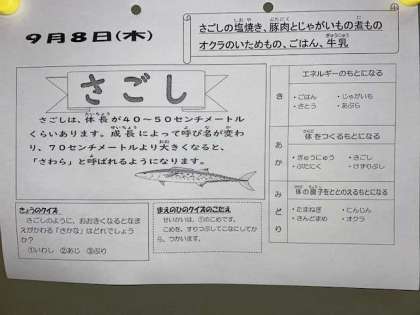 9月8日(木)
さごしの塩焼き、豚肉とじゃがいもの煮もの
オクラのいためもの、ごはん、牛乳
さごし
さごしは、体長が40～50センチメートル
くらいあります。成長によって呼び名が変わ
り、70センチメートルより大きくなると、
「さわら」と呼ばれるようになります。
きょうのクイズ
さごしのように、おおきくなるとなま
えがかわる「さかな」はどれでしょう
か？
①いわし ②あじ ③ぶり
まえのひのクイズのこたえ
せいかいは、①のこめです。
こめを、すりつぶしてこなにしてか
ら、つかいます。
き
エネルギーのもとになる
・ごはん ・じゃがいも
・さとう ・あぶら
あか
体をつくるもとになる
・ぎゅうにゅう ・さごし
・ぶたにく ・けずりぶし
みどり
体の調子をととのえるもとになる
・たまねぎ ・にんじん
・さんどまめ ・オクラ